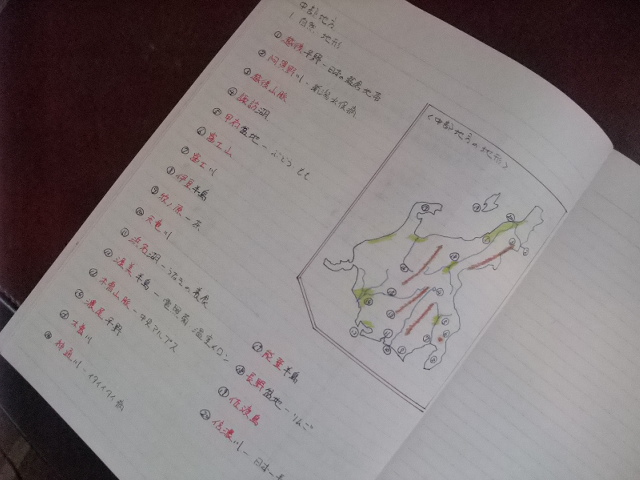 中部地方
1 自然 地形
① 越後平野 - 日本の穀倉地帯
② 阿賀野川 - 新潟水俣病
③ 越後山脈
④ 諏訪湖
⑤ 甲府盆地 - ぶどう もも
⑥ 富士山
⑦ 富士川
⑧ 伊豆半島
⑨ 牧ノ原 - 茶
⑩ 天竜川
⑪ 浜名湖 - うなぎの養殖
⑫ 渥美半島 - 電照菊 温室メロン
⑬ 木曽山脈 - 中央アルプス
⑭ 濃尾平野
⑮ 木曽川
⑯ 神通川 - イタイイタイ病
⑰ 能登半島
⑱ 長野盆地 - りんご
⑲ 佐渡島
⑳ 信濃川 - 日本一
〈中部地方の地形〉